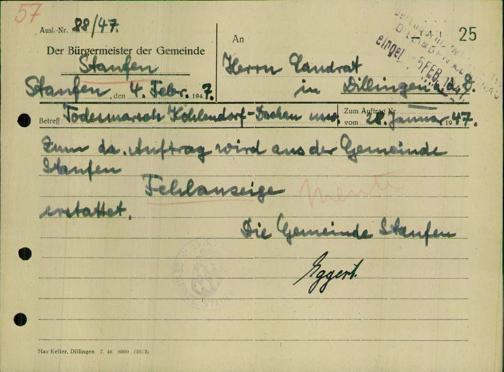 57
Ausl.-Nr. 88/47.
25
Der Bürgermeister der Gemeinde
An
Staufen
Herrn Landrat
Staufen, den 4. Febr. 1947.
in Dillingen a/d D.
eingel. 5. FEB. 1947
Betreff: Todesmarsch Kohlendorf-Dachau usw.
Zum Auftrag Nr.
vom 28. Januar 1947.
Zum da. Auftrag wird aus der Gemeinde
Staufen
Fehlanzeige
erstattet.
Die Gemeinde Staufen
Eggert.
Max Keller, Dillingen